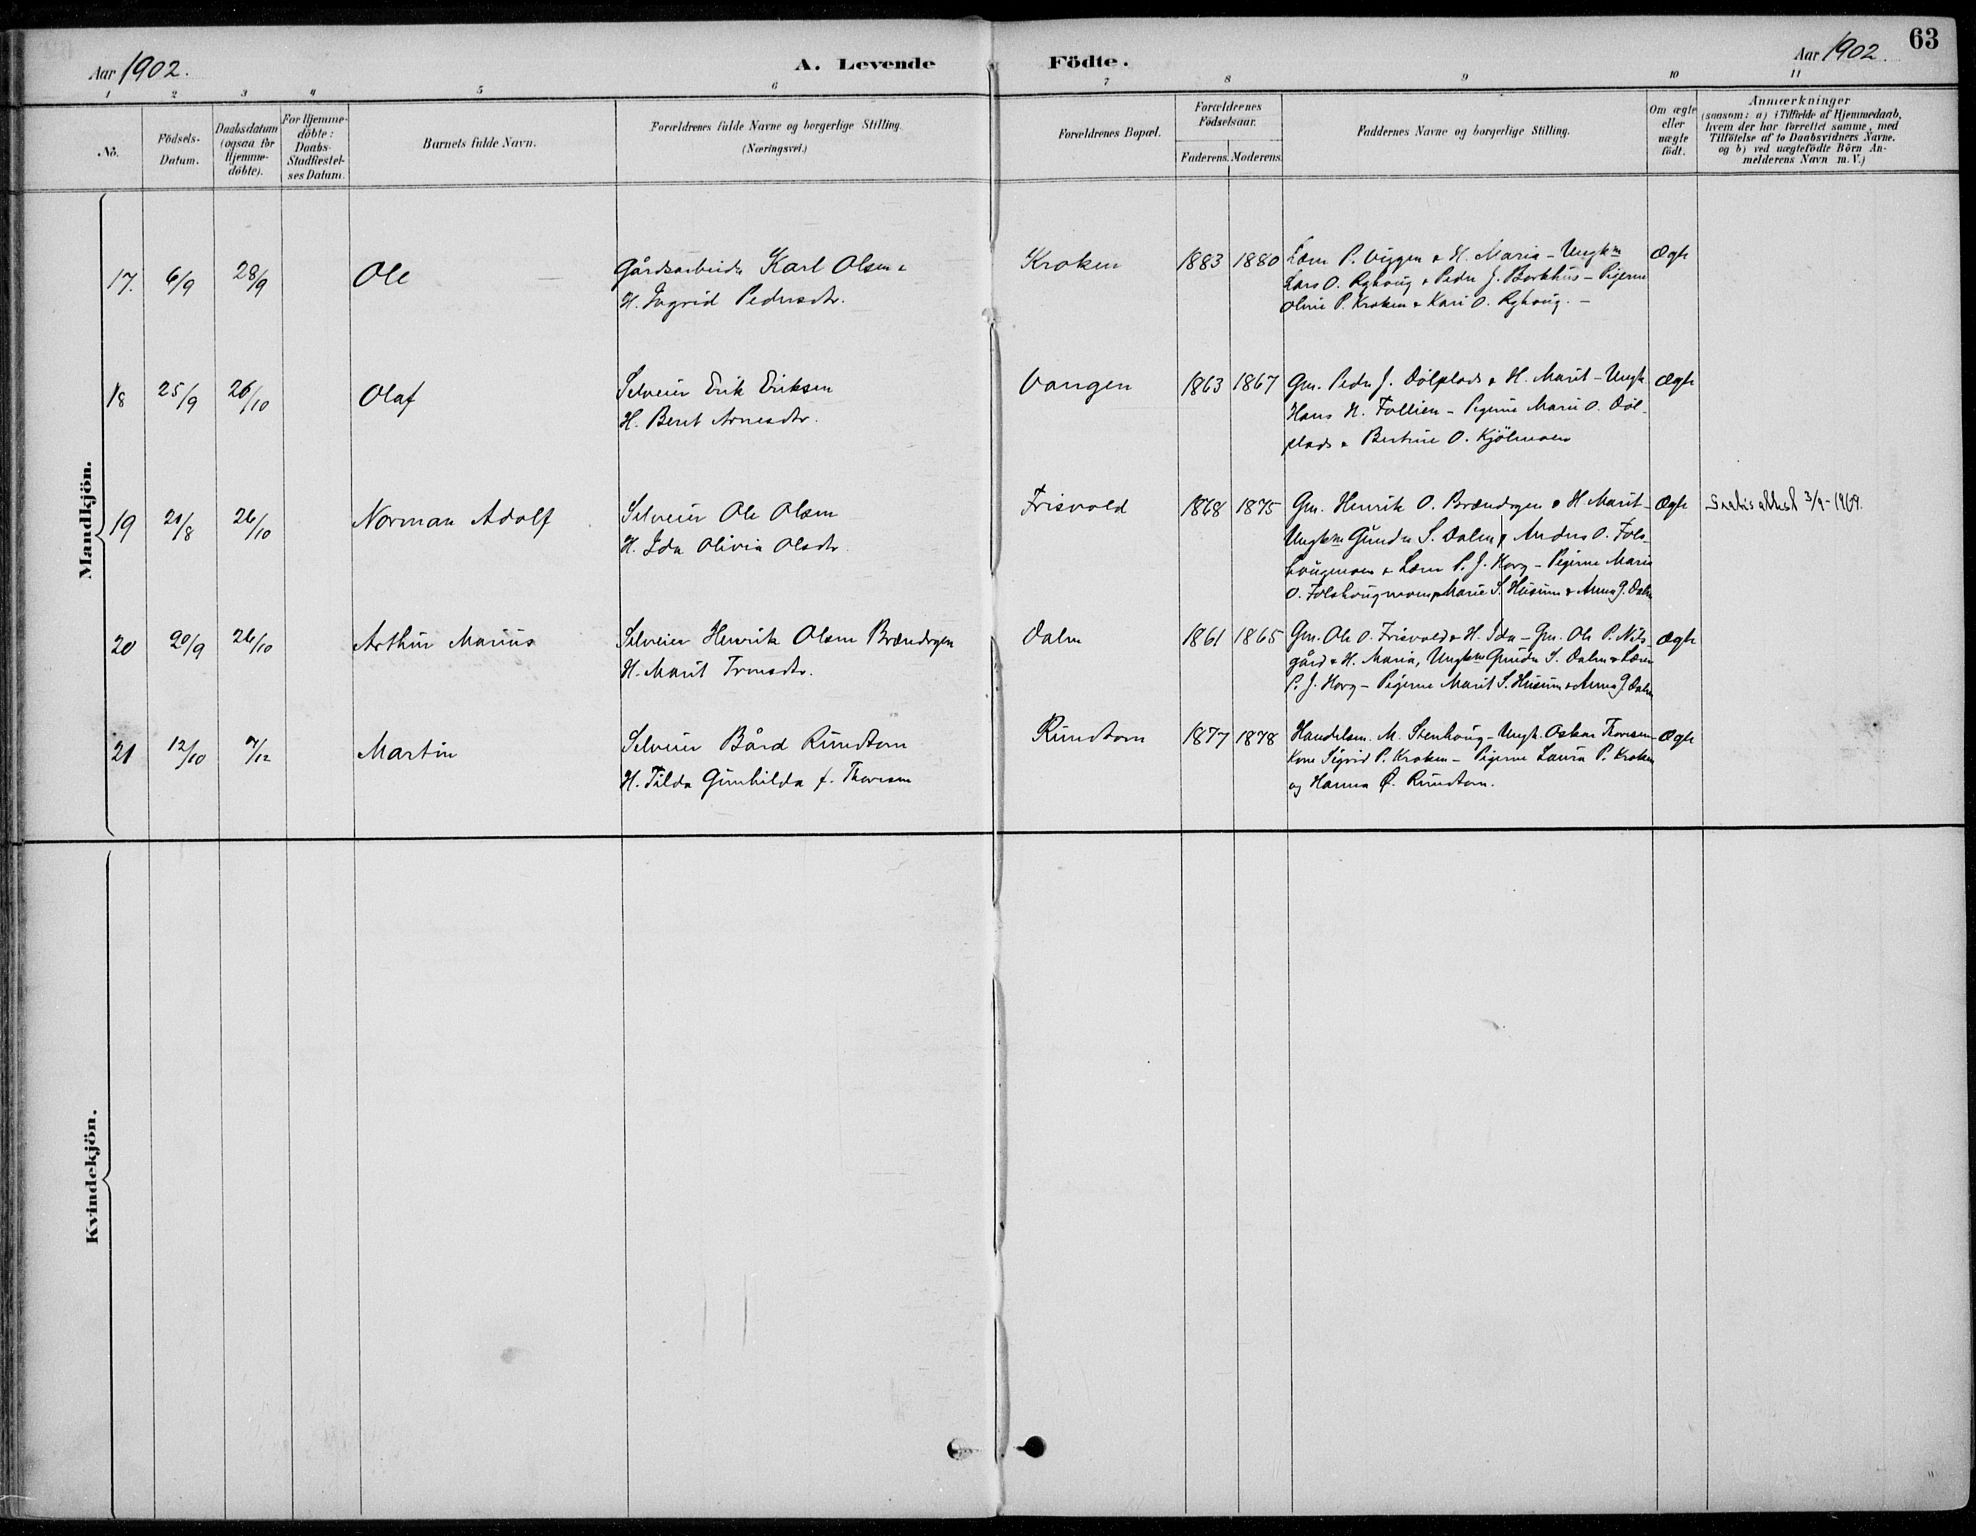 63
Aar 1902.
A. Levende Födte.
Aar 1902.
1 2 3 4 5 6 7 8 9 10 11
No.
Födsels-
Datum.
Daabsdatum
(ogsaa for
Hjemme-
döbte).
For Hjemme-
döbte:
Daabs-
Stadfæstel-
ses Datum.
Barnets fulde Navn.
Forældrenes fulde Navne og borgerlige Stilling.
(Næringsvei.)
Forældrenes Bopæl.
Forældrenes
Födselsaar.
Faderens. Moderens.
Faddernes Navne og borgerlige Stilling.
Om ægte
eller
uægte
födt.
Anmærkninger
(saasom: a) i Tilfælde af Hjemmedaab,
hvem der har forrettet samme, med
Tilföielse af to Daabsvidners Navne.
og b) ved uægtefödte Börn An-
melderens Navn m. V.)
Mandkjön.
17. 6/9 28/9 Ole Gårdsarbeider Karl Olsen &
H. Ingrid Pedersdtr.
Kroken 1883 1880 P. Viggen & H. Maria - Ungkm
Lars O. Ryhoug & Peder J. Borkhus - Pigerne
Oline P. Kroken & Kari O. Ryhoug. -
Ægte
18 25/9 26/10 Olaf Selveier Erik Eriksen
H. Berit Arnesdtr.
Vangen 1863 1867 Gm. Peder J. Dölplads & H. Marit - Ungk.
Hans H. Follien - Pigerne Marie O. Döl-
plads & Bertine O. Kjölmoen
Ægte
19 21/8 26/10 Norman Adolf Selveier Ole Olsen
H. Ida Olivia Olsdtr.
Frisvold 1868 1875 Gm. Henrik O. Brændryen & H. Marit -
Ungkm Gunder S. Dalen & Anders O. Fols-
hougmoen & P. J. Horg - Pigerne Marie
O. Folshougmoen, Marie S. Husum & Anna J. Dalen
Ægte 3/9-1969.
20 20/9 26/10 Arthur Marius Selveier Henrik Olsen Brændryen
H. Marit Tronsdtr.
Dalen 1861 1865 Gm. Ole O. Frisvold & H. Ida - Gm. Ole P.
gård & H. Maria, Ungkm Gunder S. Dalen &
P. J. Horg - Pigerne Marit S. Husum & Anna J. Dalen
Ægte
21 12/10 7/12 Martin Selveier Bård Rundtom
H. Tilda Gunhilda f. Thoresen
Rundtom 1877 1878 Handelsm. M. Stenhoug - Ungk. Oskar Thoresen -
Kone Sigrid P. Kroken - Pigerne Laura P. Kroken
og Hanna Rundtom.
Ægte
Kvindekjön.